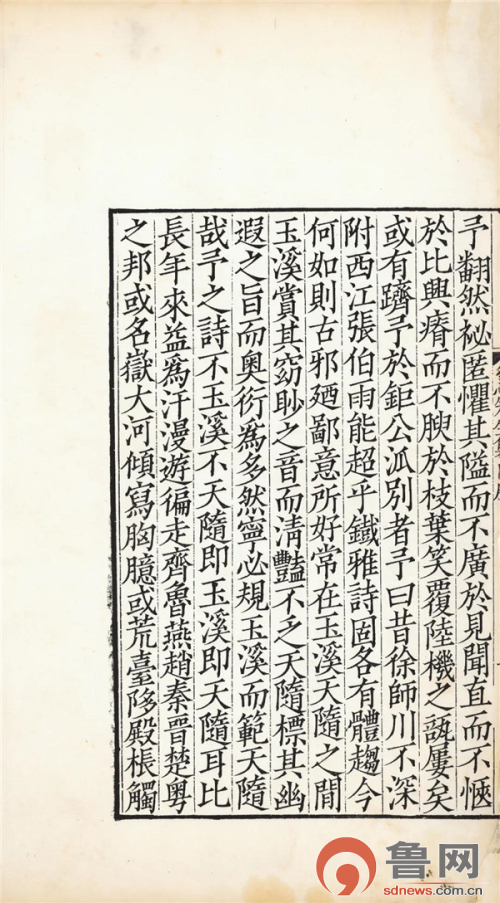 予翻然祕匿懼其隘而不廣於見聞直而不愜
於比興瘠而不腴於枝葉笑覆陸機之瓿屢矣
或有躋予於鉅公泒別者予曰昔徐師川不深
附西江張伯雨能超乎鐵雅詩固各有體趨今
何如則古邪廼鄙意所好常在玉溪天隨之間
玉溪賞其窈眇之音而清豔不乏天隨標其幽
遐之旨而奥衍爲多然寧必規玉溪而範天隨
哉予之詩不玉溪不天隨即玉溪即天隨耳比
長年來益爲汗漫遊徧走齊魯燕趙秦晉楚粤
之邦或名嶽大河傾寫胸臆或荒臺陊殿棖觸
鲁网
sdnews.com.cn